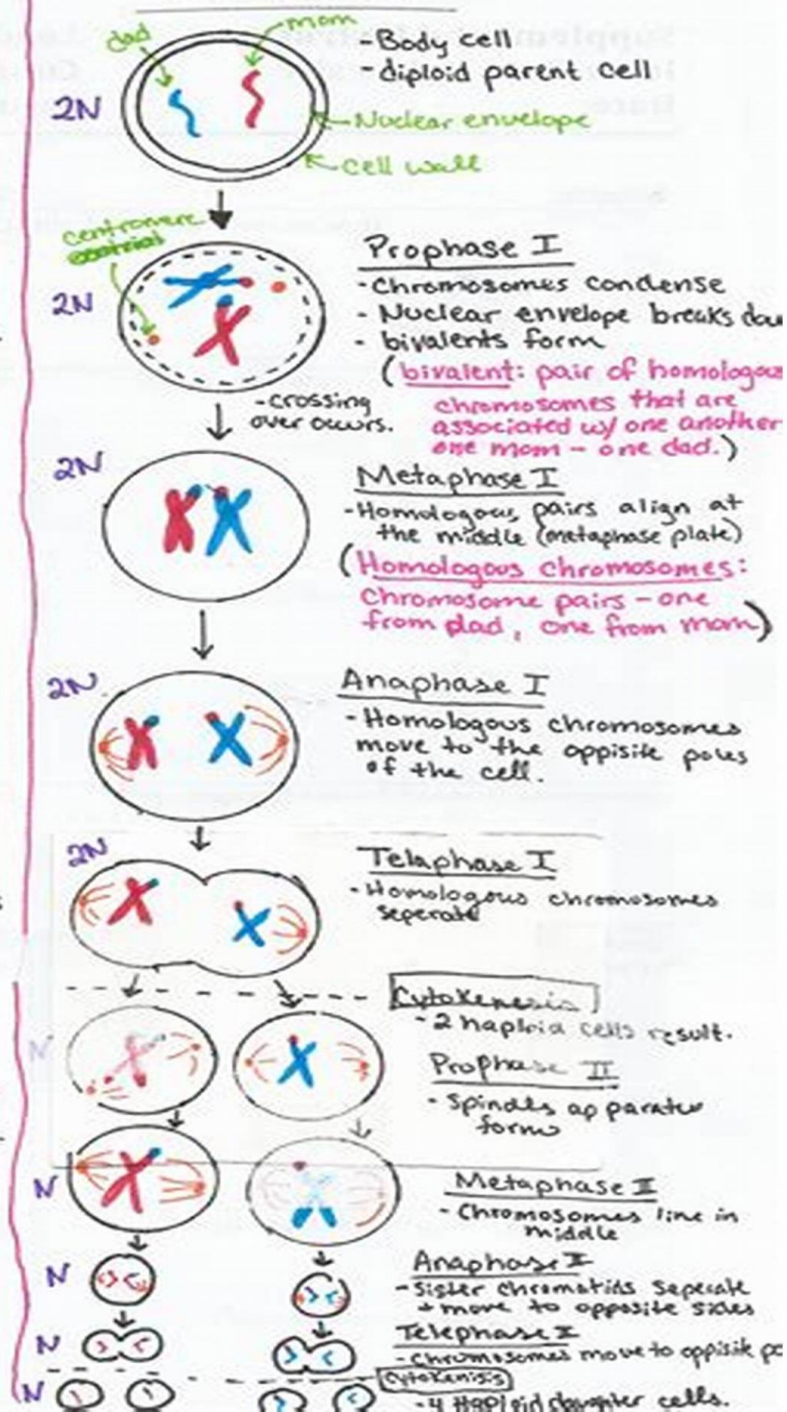 dad
mom
- Body cell
- diploid parent cell
2N
Nuclear envelope
Cell wall
centromere
Prophase I
2N
- Chromosomes condense
- Nuclear envelope breaks dow
- bivalents form
(bivalent: pair of homologous
chromosomes that are
associated w/ one another
one mom - one dad.)
- crossing
over occurs.
2N
Metaphase I
- Homologous pairs align at
the middle (metaphase plate)
(Homologous chromosomes:
Chromosome pairs - one
from dad, one from mom)
2N
Anaphase I
- Homologous chromosomes
move to the opposite poles
of the cell.
2N
Telaphase I
- Homologous chromosomes
seperate
Cytokenesis
- 2 haploid cells result.
N
Prophase II
- Spindles apparatus
forms
N
Metaphase II
- Chromosomes line in
middle
N
Anaphase II
- Sister chromatids seperate
+ move to opposite sides
N
Telephase II
- Chromosomes move to opposite po
Cytokenisis
N
- 4 Haploid daughter cells.